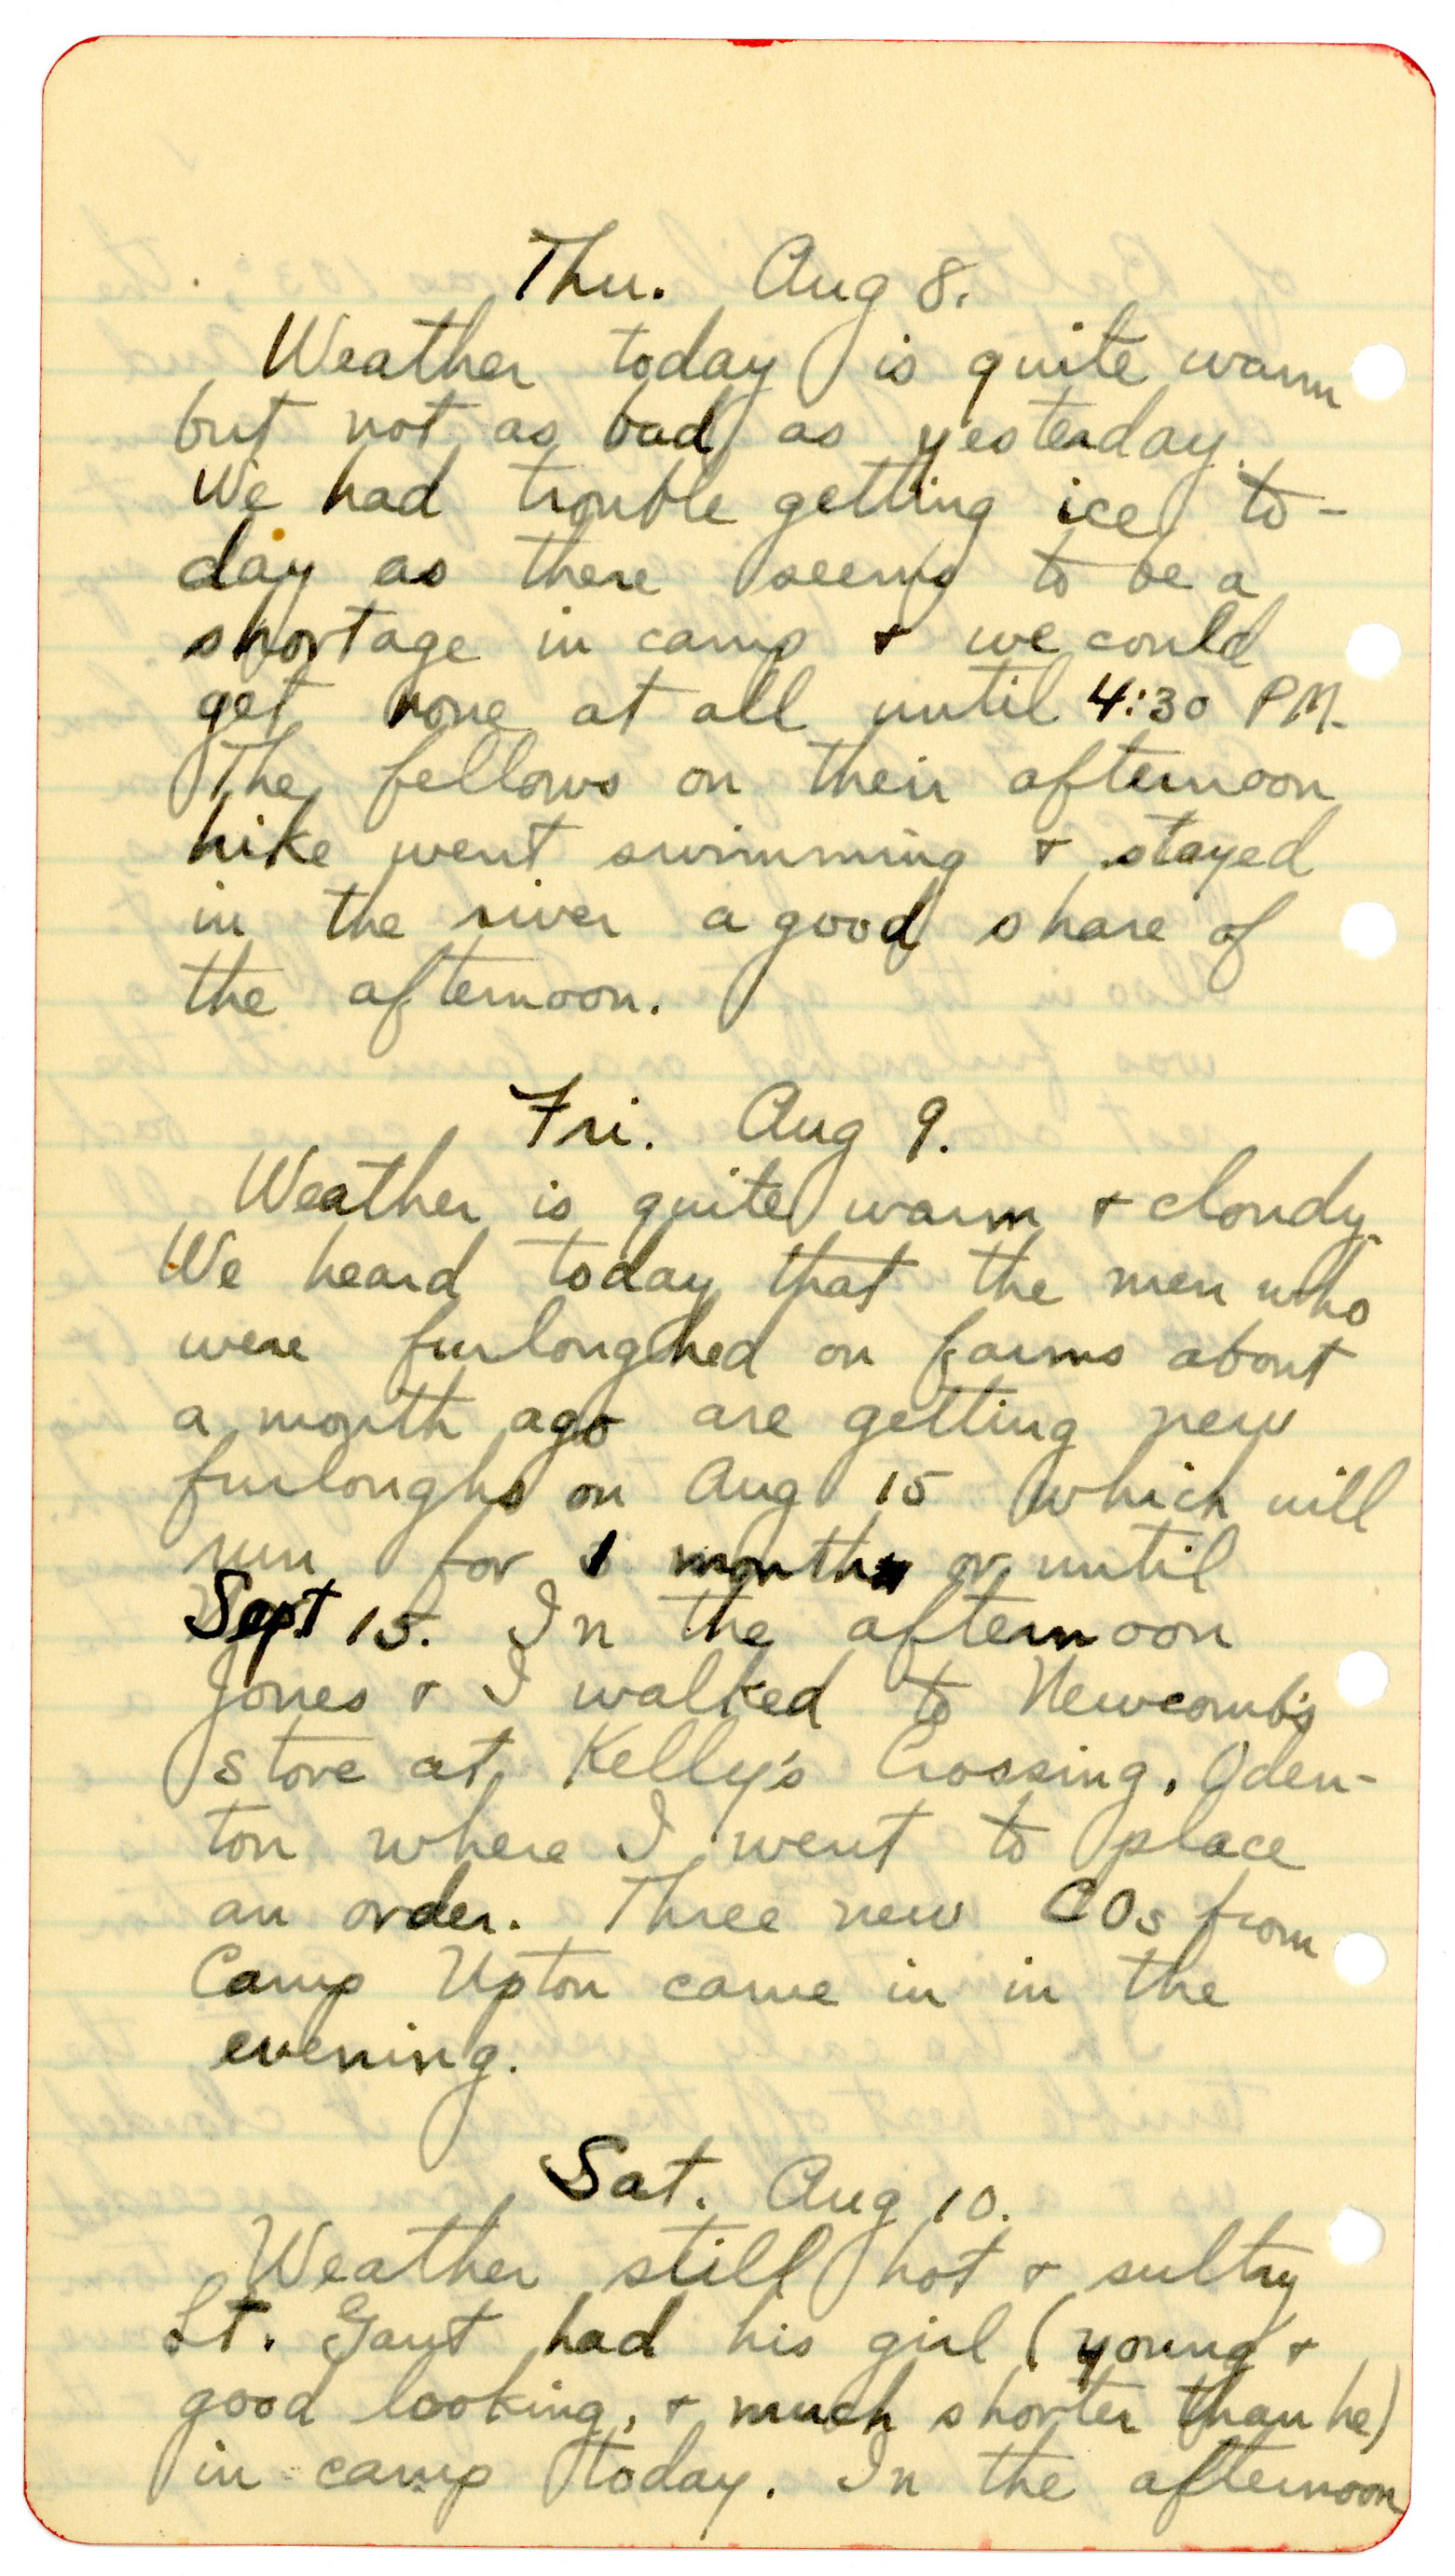 Thu. Aug 8.
Weather today is quite warm
but not as bad as yesterday.
We had trouble getting ice to-
day as there seems to be a
shortage in camp & we could
get none at all until 4:30 PM.
The fellows on their afternoon
hike went swimming & stayed
in the river a good share of
the afternoon.
Fri. Aug 9.
Weather is quite warm & cloudy.
We heard today that the men who
were furloughed on farms about
a month ago are getting new
furloughs on Aug 15 which will
run for 1 month or until
Sept 15. In the afternoon
Jones & I walked to Newcomb's
store at Kelly's Crossing, Oden-
ton where I went to place
an order. Three new COs from
Camp Upton came in in the
evening.
Sat. Aug 10.
Weather still hot & sultry
Lt. Gant had his girl (young &
good looking, & much shorter than he)
in camp today. In the afternoon